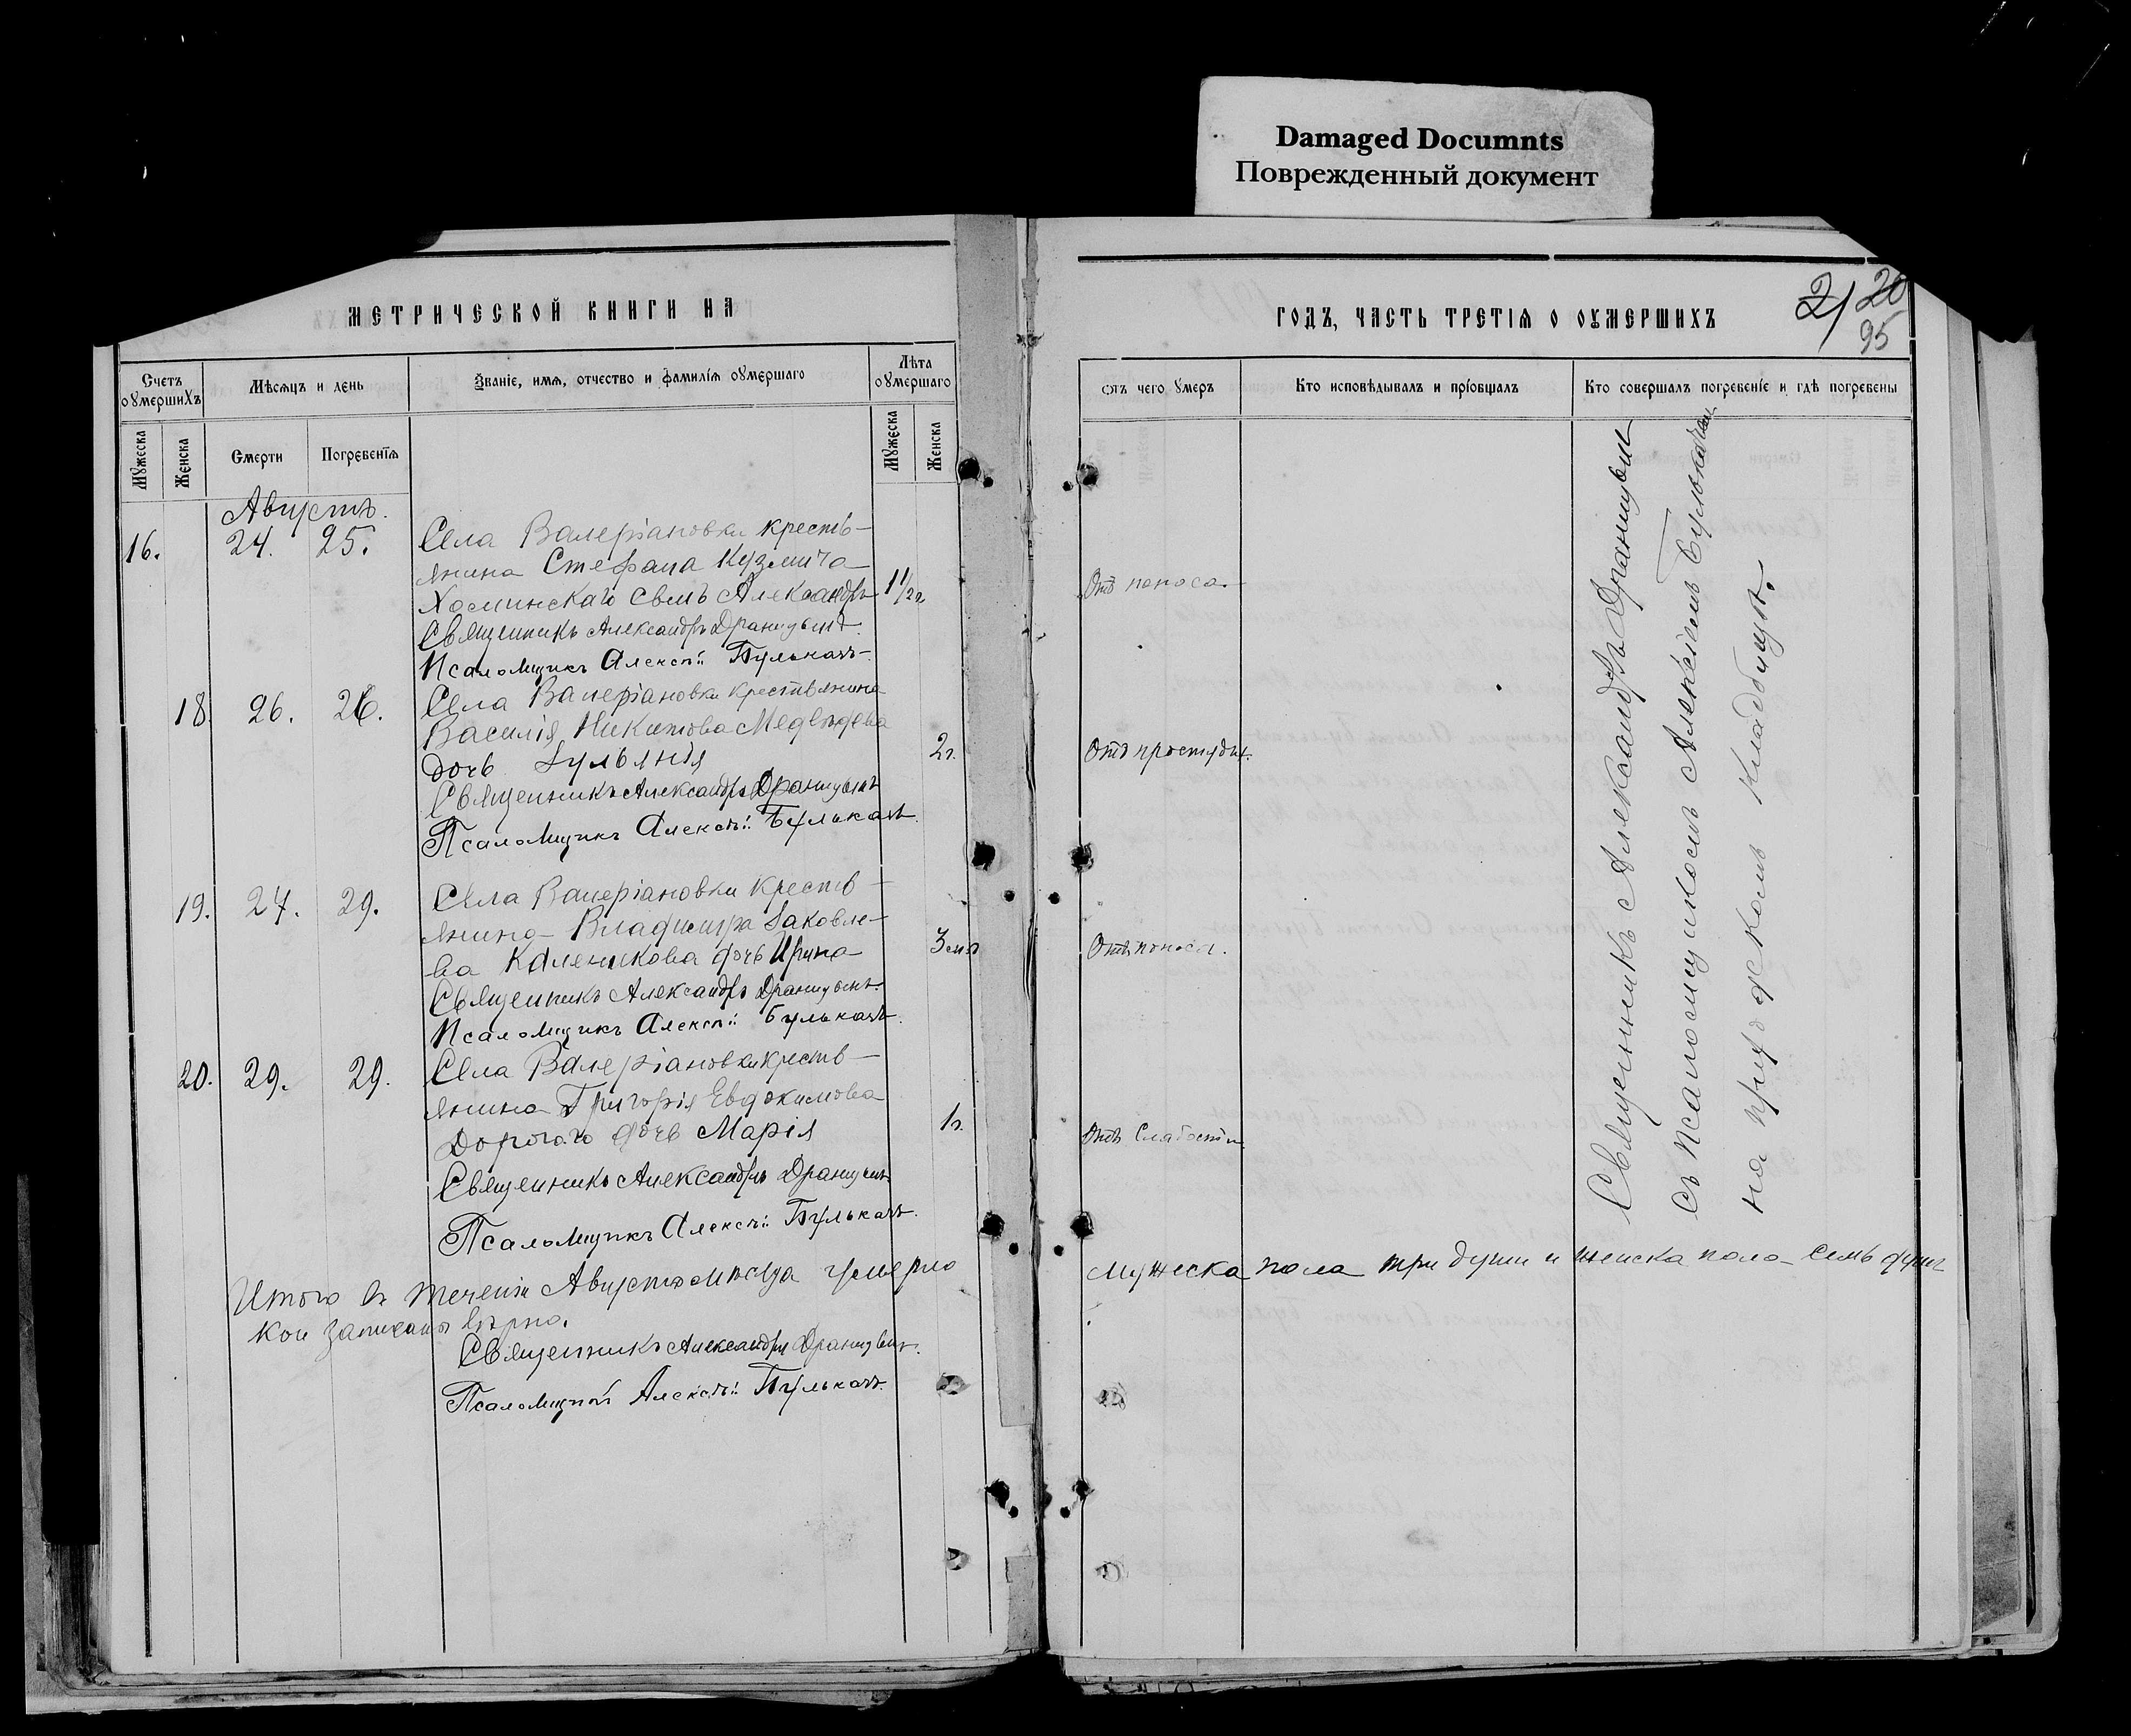 Damaged Documnts
Поврежденный документ
МЕТРИЧЕСКОЙ КНИГИ НА
ГОДЪ, ЧАСТЬ ТРЕТІЯ О ОУМЕРШИХЪ
21 20
95
Счетъ оумершихъ
Мѣсяцъ и день
Званіе, имя, отчество и фамилія оумершаго
Лѣта оумершаго
Мужеска
Женска
Смерти
Погребенія
Мужеска
Женска
отъ чего умеръ
Кто исповѣдывалъ и пріобщалъ
Кто совершалъ погребеніе и гдѣ погребены
Августъ.
16. 24. 25. Села Валеріановки кресть-
янина Стефана Кузмича
Хоминскаго сынъ Александръ 1 1/2 г Отъ поноса.
Священникъ Александръ
Псаломщикъ Алексѣй Булькачъ.
18. 26. 26. Села Валеріановки крестьянина
Василія Никитова Медвѣдева
дочь Іульянія 2 г. Отъ простуды.
Священникъ Александръ
Псаломщикъ Алексѣй Булькачъ.
19. 27. 29. Села Валеріановки кресть-
янина Владимира Іаковле-
ва Каленикова дочь Ирина 3 м. Отъ поноса.
Священникъ Александръ
Псаломщикъ Алексѣй Булькачъ.
20. 29. 29. Села Валеріановки кресть-
янина Григорія Евдокимова
Дорогаго дочь Марія 1 г. Отъ слабости
Священникъ Александръ
Псаломщикъ Алексѣй Булькачъ.
Итого въ теченіи Августа мѣсяца умерло мужеска пола три души и женска пола семь душъ
кои записаны вѣрно.
Священникъ Александръ
Псаломщикъ Алексѣй Булькачъ.
Священникъ Александръ
съ псаломщикомъ Алексѣемъ Булькачемъ
на приходскомъ кладбищѣ.